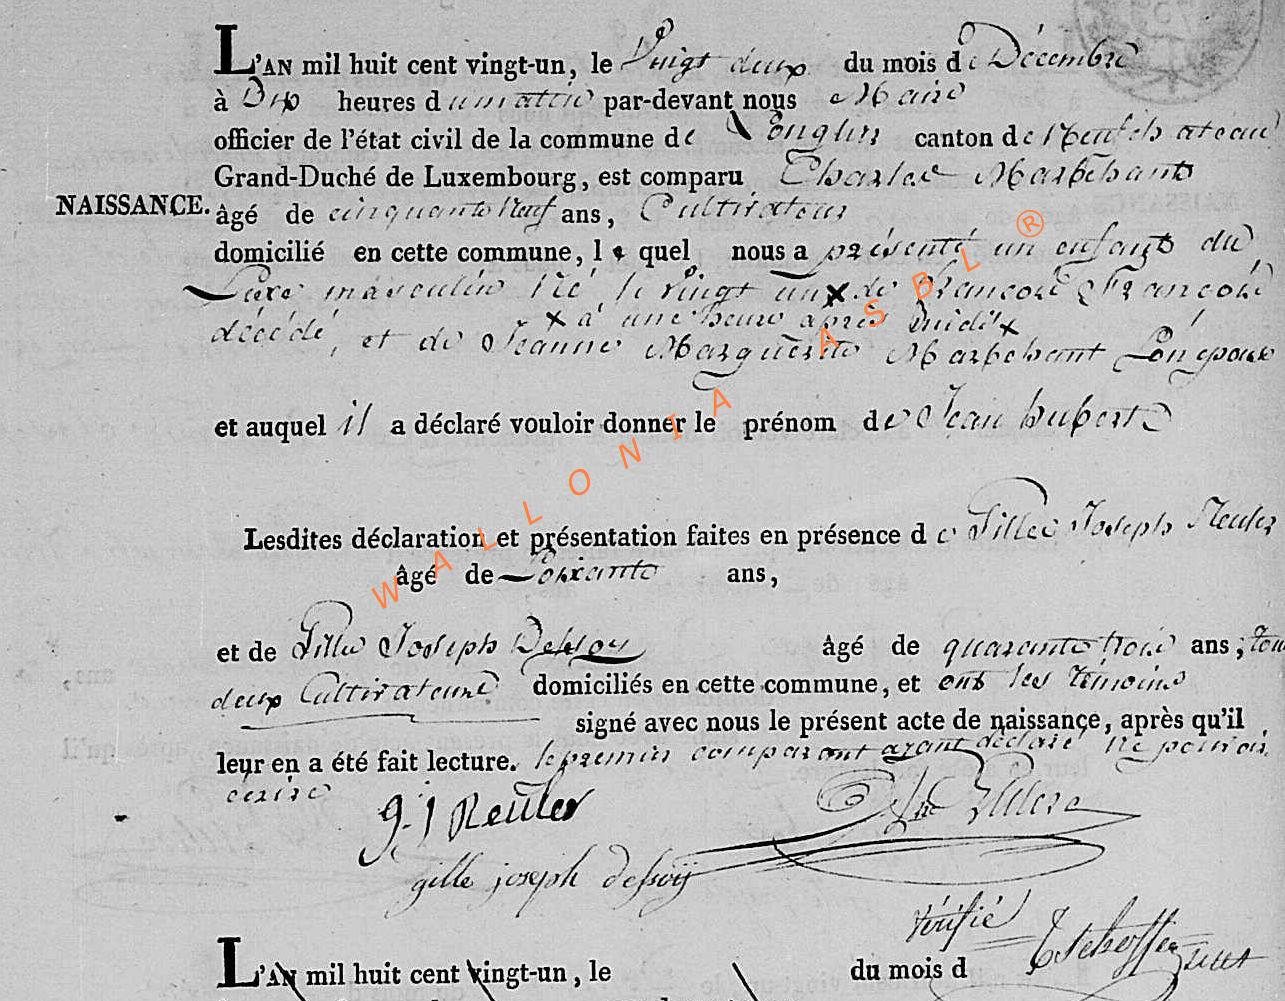 L'AN mil huit cent vingt-un, le Vingt deux du mois de Décembre
à Dix heures du matin par-devant nous Maire
officier de l'état civil de la commune de Longlier canton de Neufchateau
Grand-Duché de Luxembourg, est comparu Charles Marbehant
NAISSANCE. âgé de cinquante neuf ans, Cultivateur
domicilié en cette commune, lequel nous a présenté un enfant du
Sexe masculin né, le vingt un x de François François
x à une heure après midi x
décédé, et de Jeanne Marguerite Marbehant Son épouse
et auquel il a déclaré vouloir donner le prénom de Jean hubert
Lesdites déclaration et présentation faites en présence de Gille Joseph Reuter
âgé de Soixante ans,
et de Gille Joseph Dessoy âgé de quarante trois ans; tous
deux Cultivateurs domiciliés en cette commune, et ont les témoins
signé avec nous le présent acte de naissance, après qu'il
leur en a été fait lecture. le premier comparant ayant déclaré ne pouvoir
écrire
g. j Reuter
gille joseph dessoÿ
Vérifié
L'AN mil huit cent vingt-un, le du mois d
WALLONIA ASBL ®